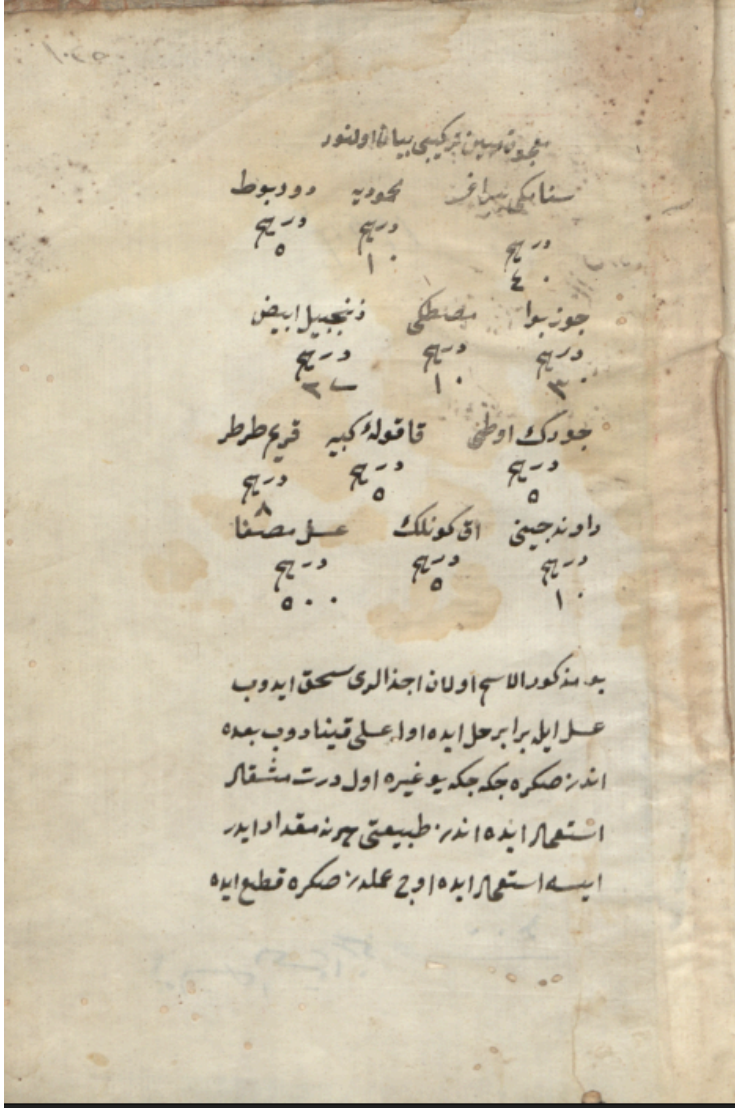 معجون مسهل تركيبی بيان اولنور
سنامكی يپراغی محموديه دودبوط
درهم درهم درهم
٤٠ ١٠ ٥
جوز بوا مصطكی زنجبيل ابيض
درهم درهم درهم
٣٠ ١٠
جورك اوطی قاقولۀ كبير قريم طرطر
درهم درهم درهم
٥ ٥ ٨
راوند چينی اق كونلك عسل مصفا
درهم درهم درهم
١٠ ٥ ٥٠٠
بو مذكور الاسم اولان اجزالری سحق ايدوب
عسل ايله برابر حل ايده اولا عسلی قينادوب بعده
اندن صكره جكه جكه يوغيره اول درت مثقال
استعمال ايده اندن طبيعتی هر نه مقدار ايدر
ايسه استعمال ايده اوچ عملدن صكره قطع ايده